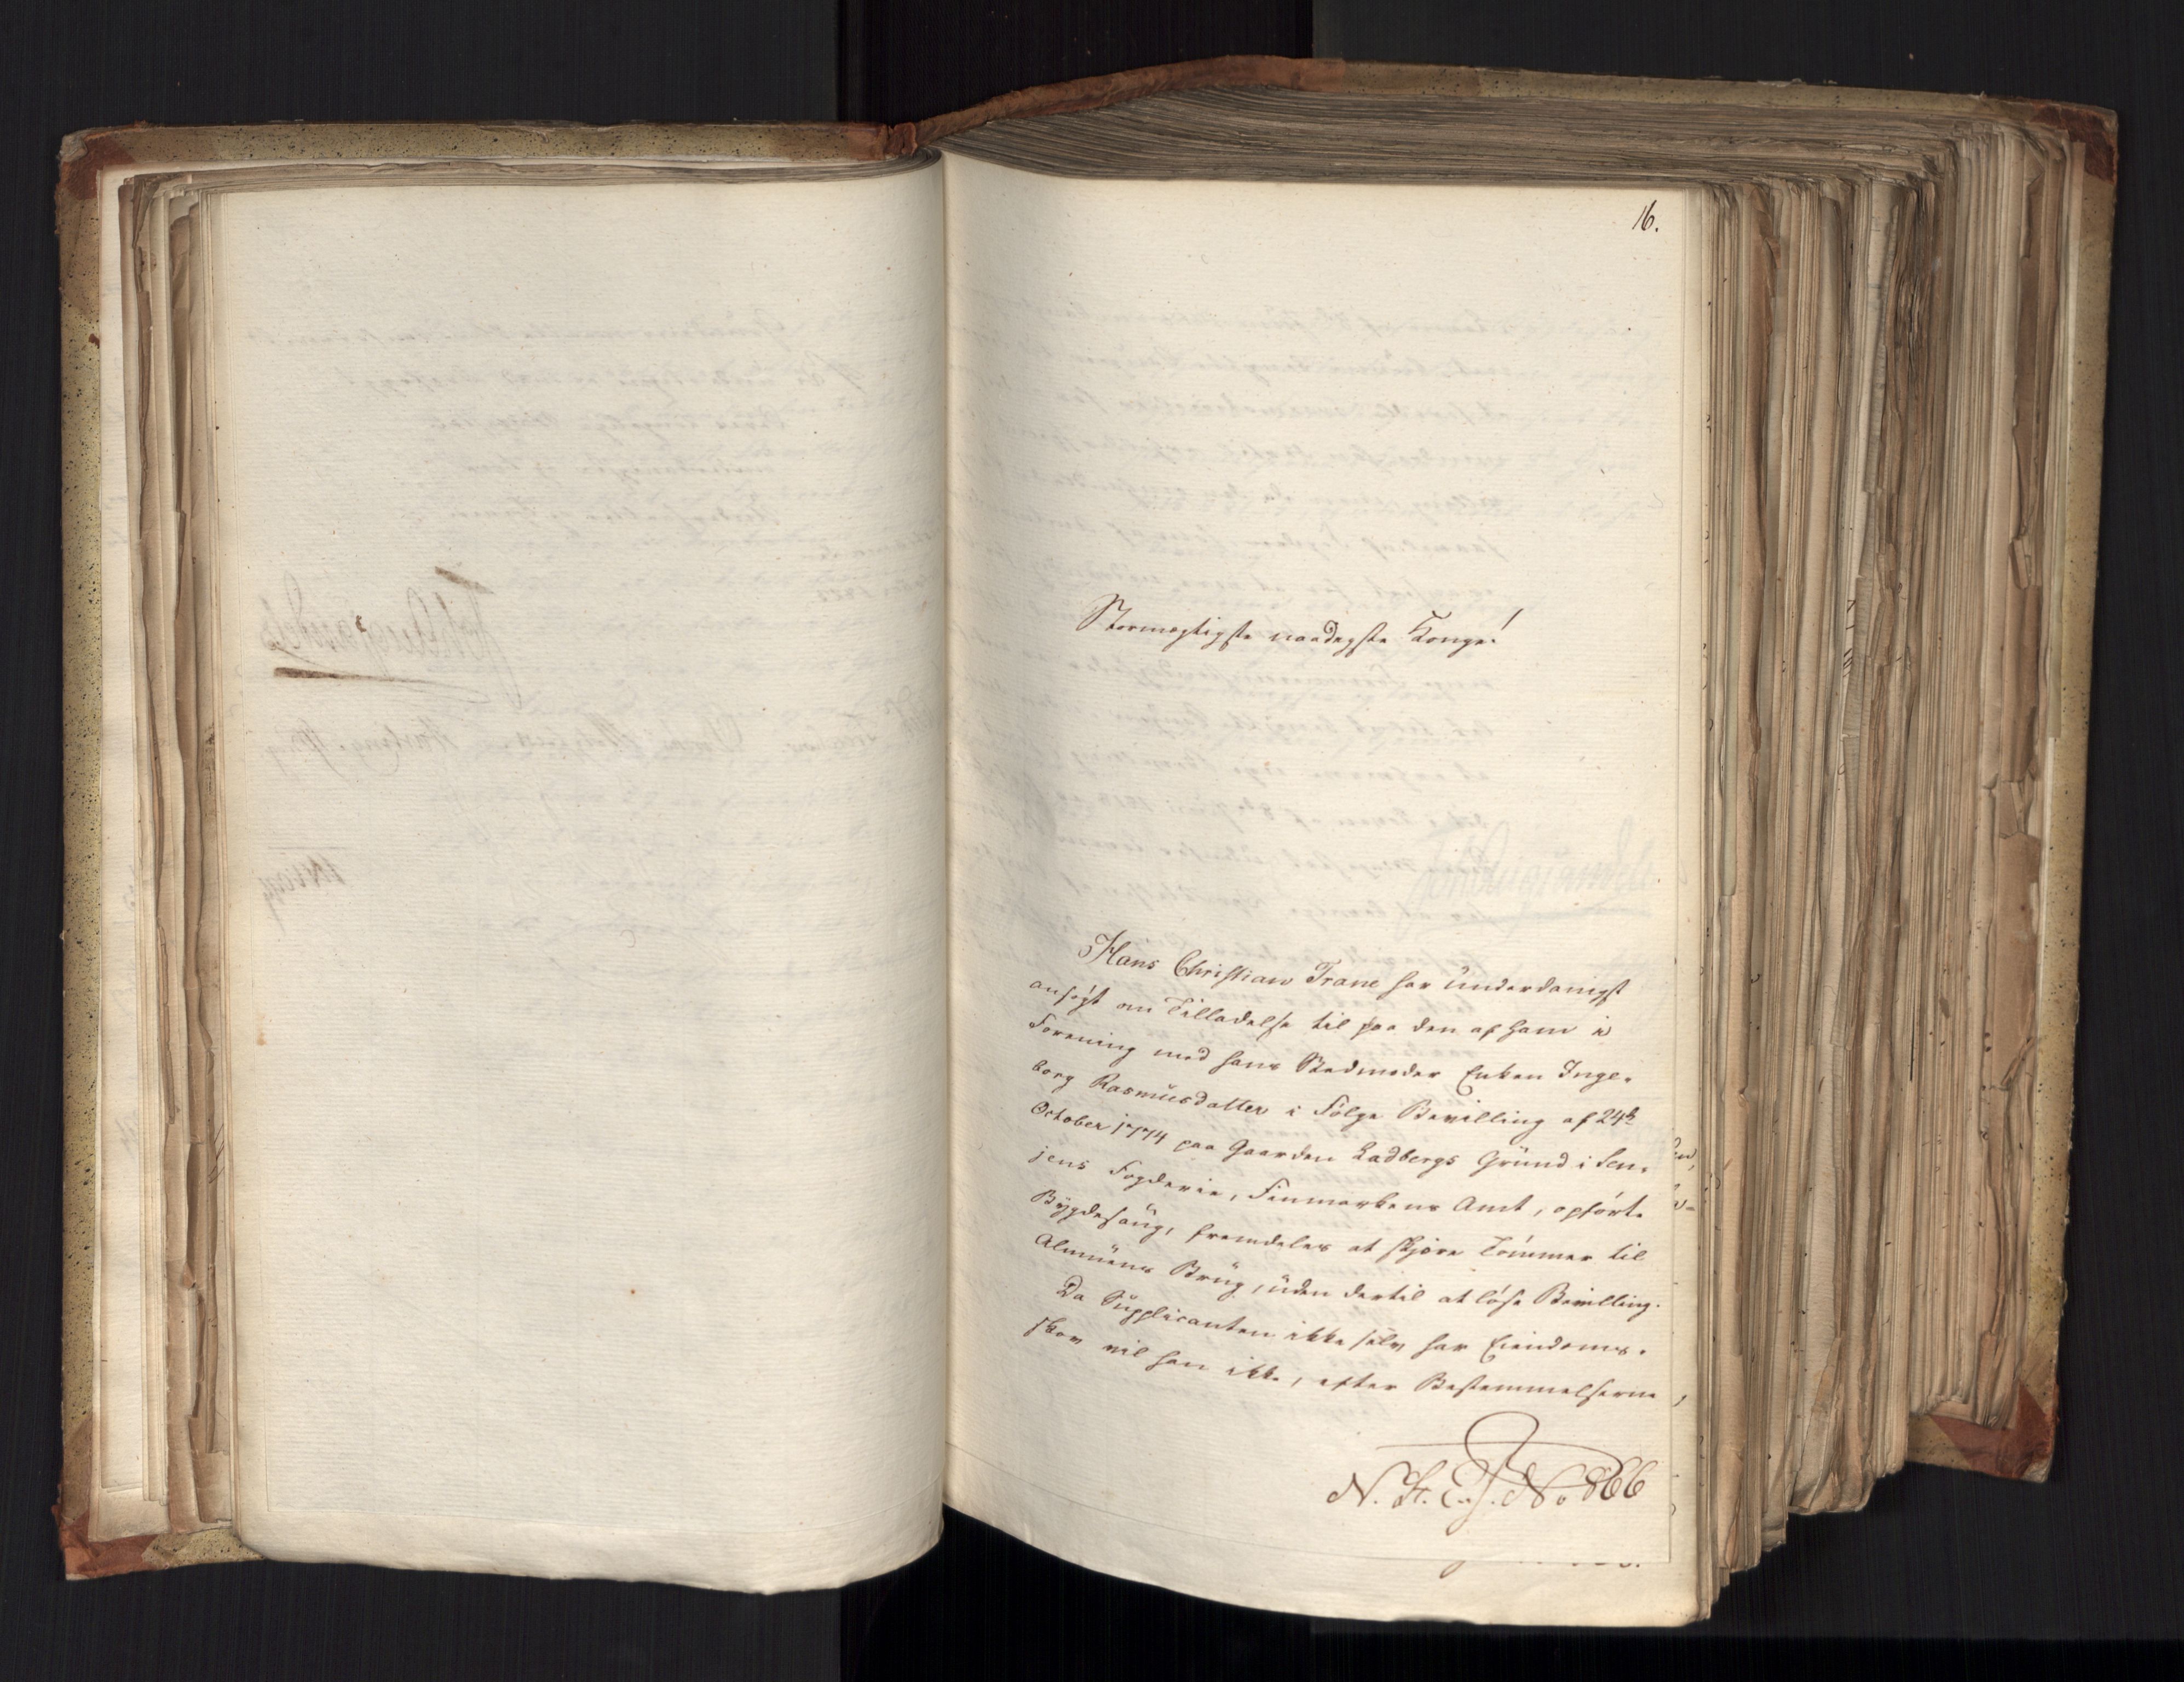 16.
Stormægtigste naadigste Konge!
Hans Christian Trane har underdanigst
ansøgt om Tilladelse til paa den af ham i
Forening med hans Stedmoder Enken Inge-
borg Rasmusdatter i Følge Bevilling af 24de
October 1774 paa Gaarden Ladbergs Grund i Sen-
jens Fogderie, Finmarkens Amt, opførte
Bygdesaug, fremdeles at skjære Tømmer til
Almuens Brug, uden dertil at løse Bevilling.
Da Supplicanten ikke selv har Eiendoms-
skov vil han ikke, efter Bestemmelserne
N. St. E. J. No 866